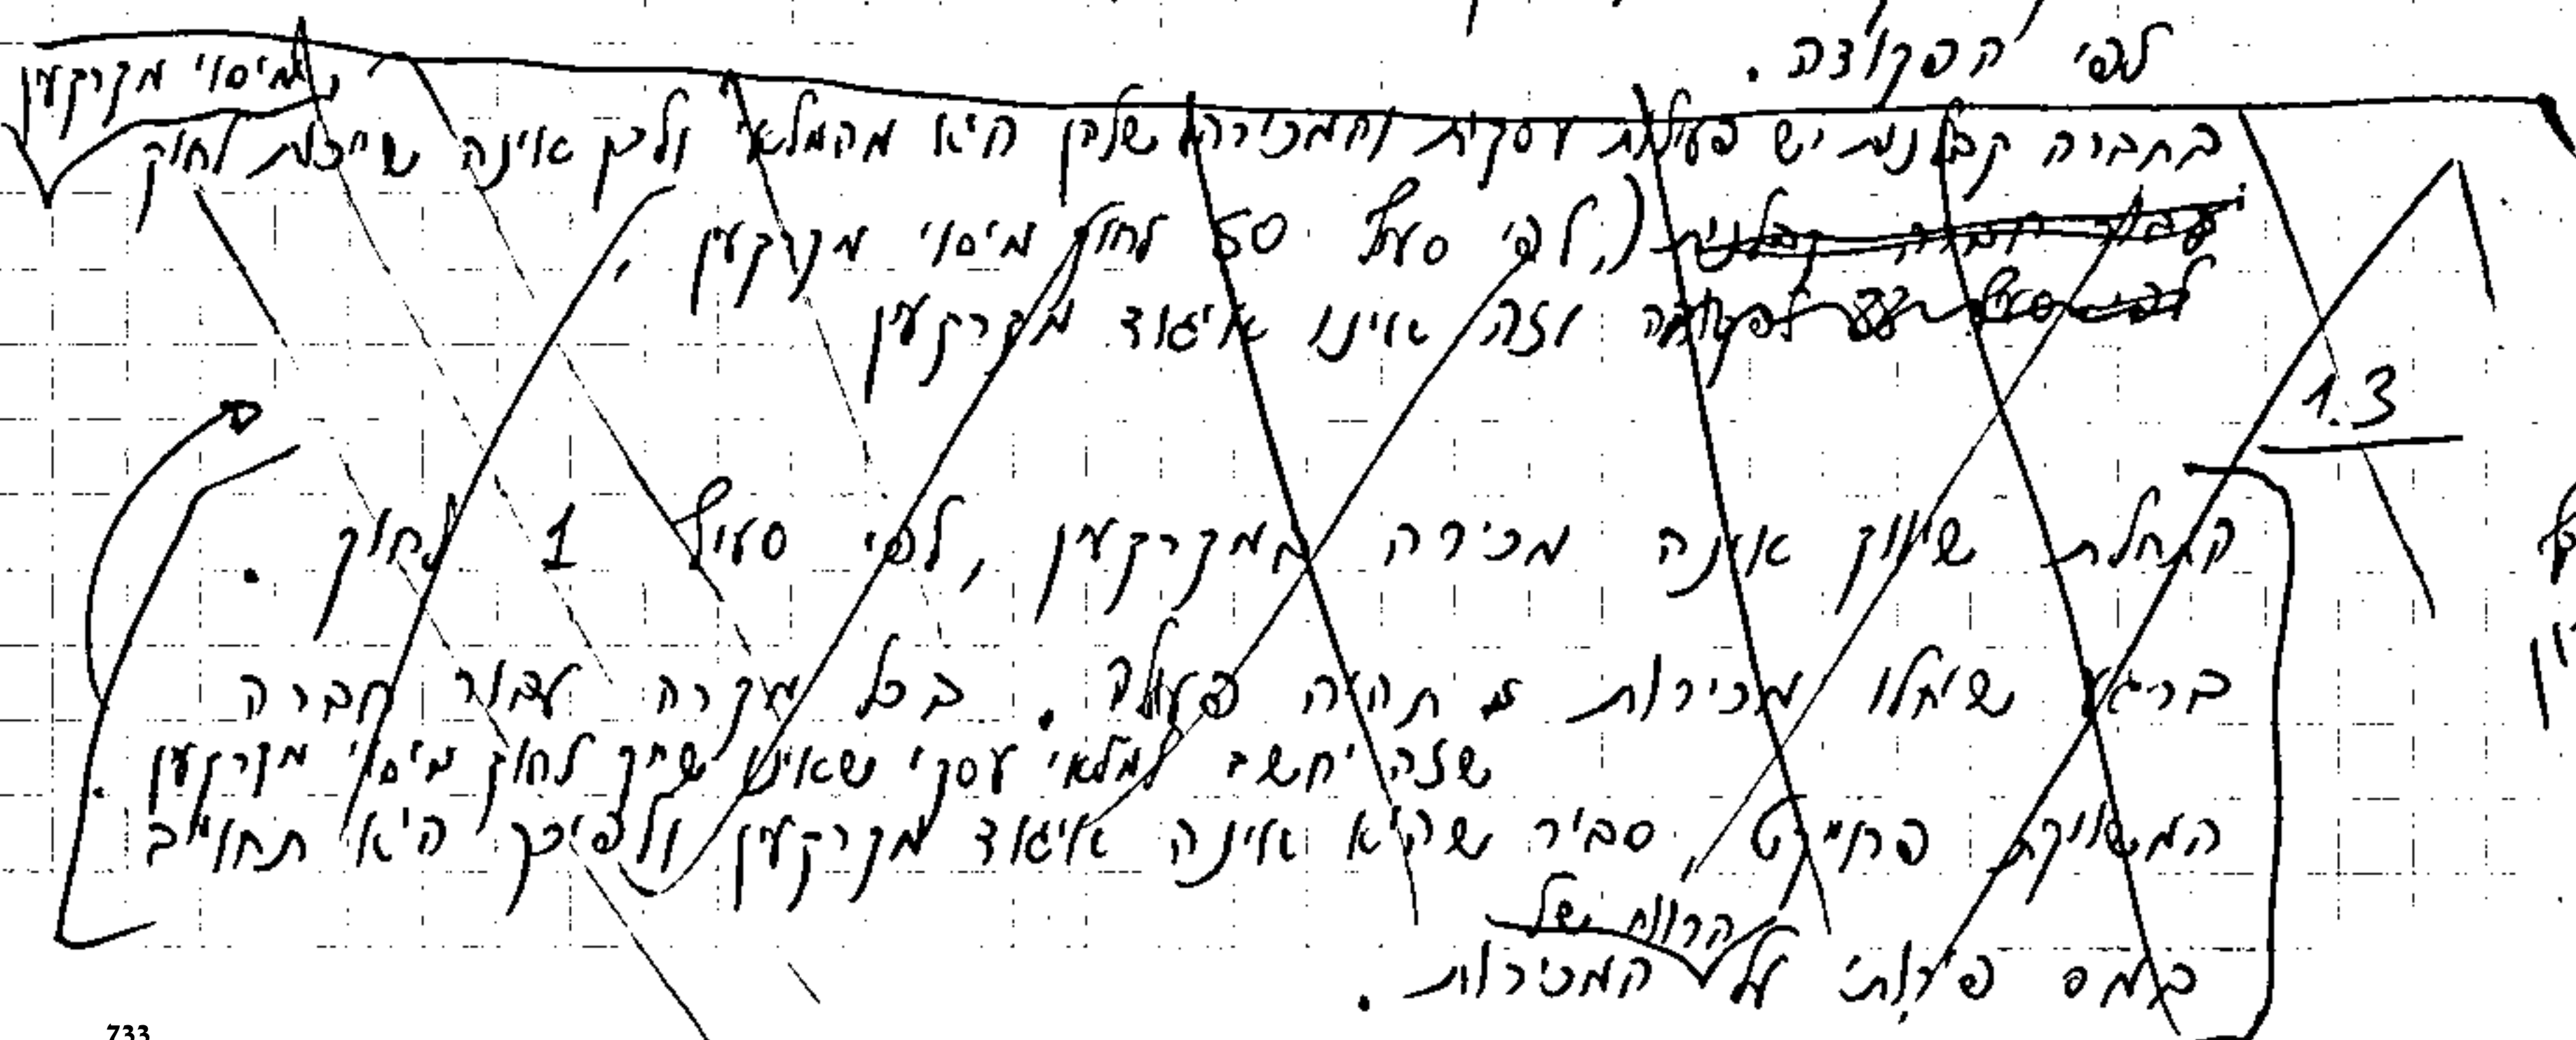 לפי הפקודה.
מיסוי מקרקעין
בחברה קבלנית יש פעילות עסקית והמכירה שלהן היא מהמלאי ולכן אינה שייכת לחוק
(, לפי סעיף 50 לחוק מיסוי מקרקעין,
לפי סעיף 88 לפקודה וזה אינו איגוד מקרקעין
1.3
התחלת שיווק אינה מכירה במקרקעין, לפי סעיף 1 לחוק.
ברגע שיחלו מכירות תהיה פעולה. בכל מקרה עבור חברה
שזה יחשב למלאי עסקי שאינו שייך לחוק מיסוי מקרקעין.
המשווקת פרוייקט, סביר שהיא אינה איגוד מקרקעין ולפיכך היא תחוייב
הרווח של
במס פירותי על המכירות.
733